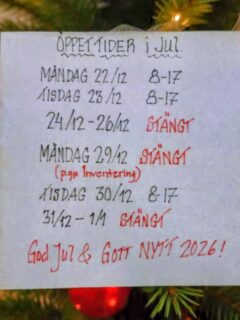 ÖPPETTIDER i JUL
MÅNDAG 22/12 8-17
TISDAG 23/12 8-17
24/12-26/12 STÄNGT
MÅNDAG 29/12 STÄNGT
(p.ga Inventering)
TISDAG 30/12 8-17
31/12-1/1 STÄNGT
God Jul & GOTT NYTT 2026!